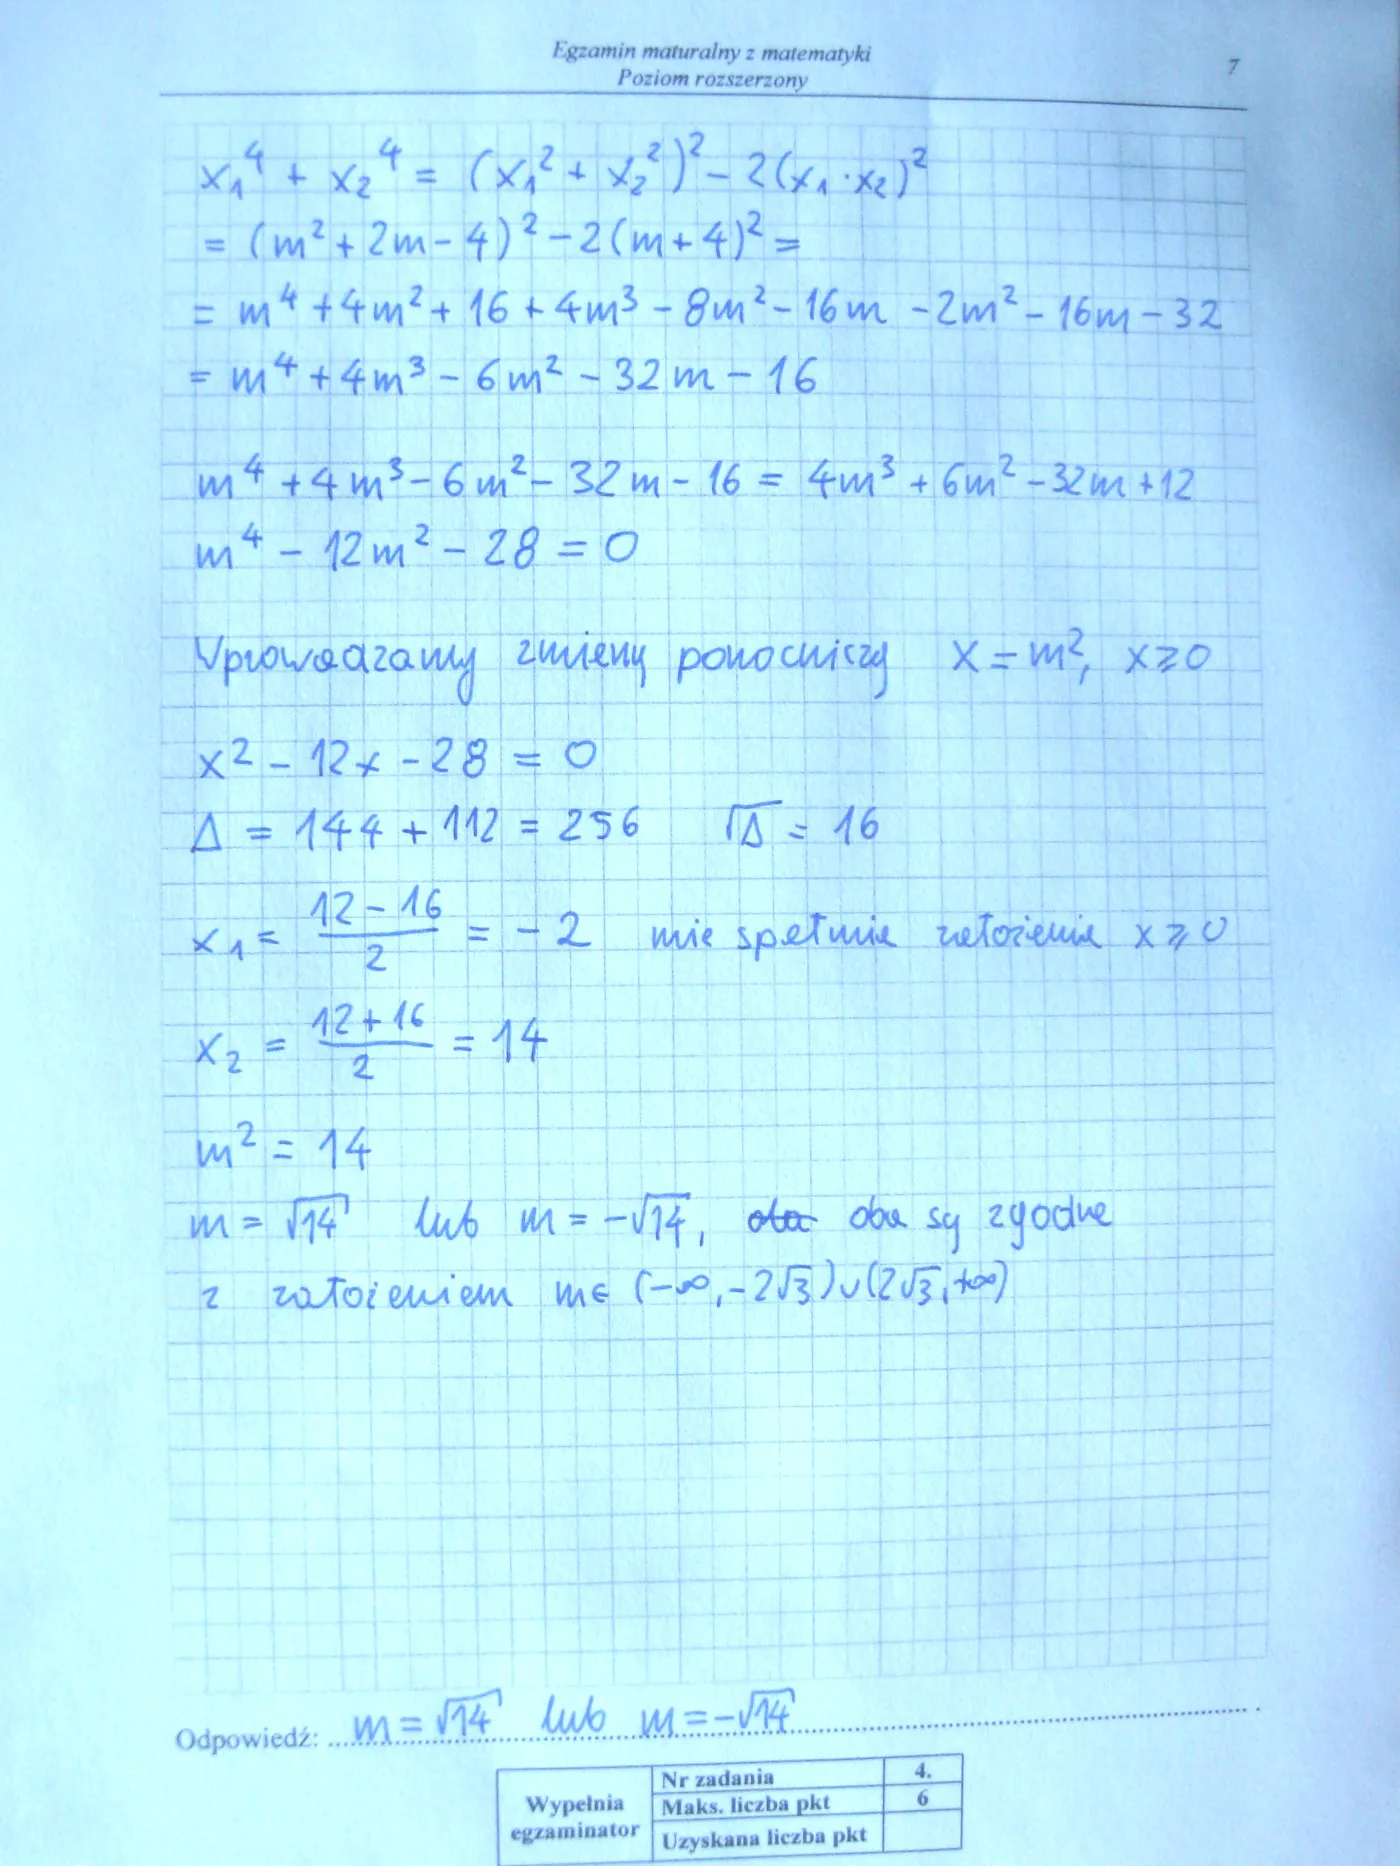 Egzamin maturalny z matematyki
Poziom rozszerzony
7
x₁⁴ + x₂⁴ = (x₁² + x₂²)² - 2(x₁·x₂)²
= (m² + 2m - 4)² - 2(m+4)² =
= m⁴ + 4m² + 16 + 4m³ - 8m² - 16m - 2m² - 16m - 32
= m⁴ + 4m³ - 6m² - 32m - 16
m⁴ + 4m³ - 6m² - 32m - 16 = 4m³ + 6m² - 32m + 12
m⁴ - 12m² - 28 = 0
Wprowadzamy zmienną pomocniczą x = m², x ≥ 0
x² - 12x - 28 = 0
Δ = 144 + 112 = 256 √Δ = 16
x₁ = (12 - 16)/2 = -2 nie spełnia założenia x ≥ 0
x₂ = (12 + 16)/2 = 14
m² = 14
m = √14 lub m = -√14, oba są zgodne
z założeniem m∈ (-∞, -2√3) ∪ (2√3, +∞)
Odpowiedź: m = √14 lub m = -√14
Wypełnia egzaminator
Nr zadania 4.
Maks. liczba pkt 6
Uzyskana liczba pkt